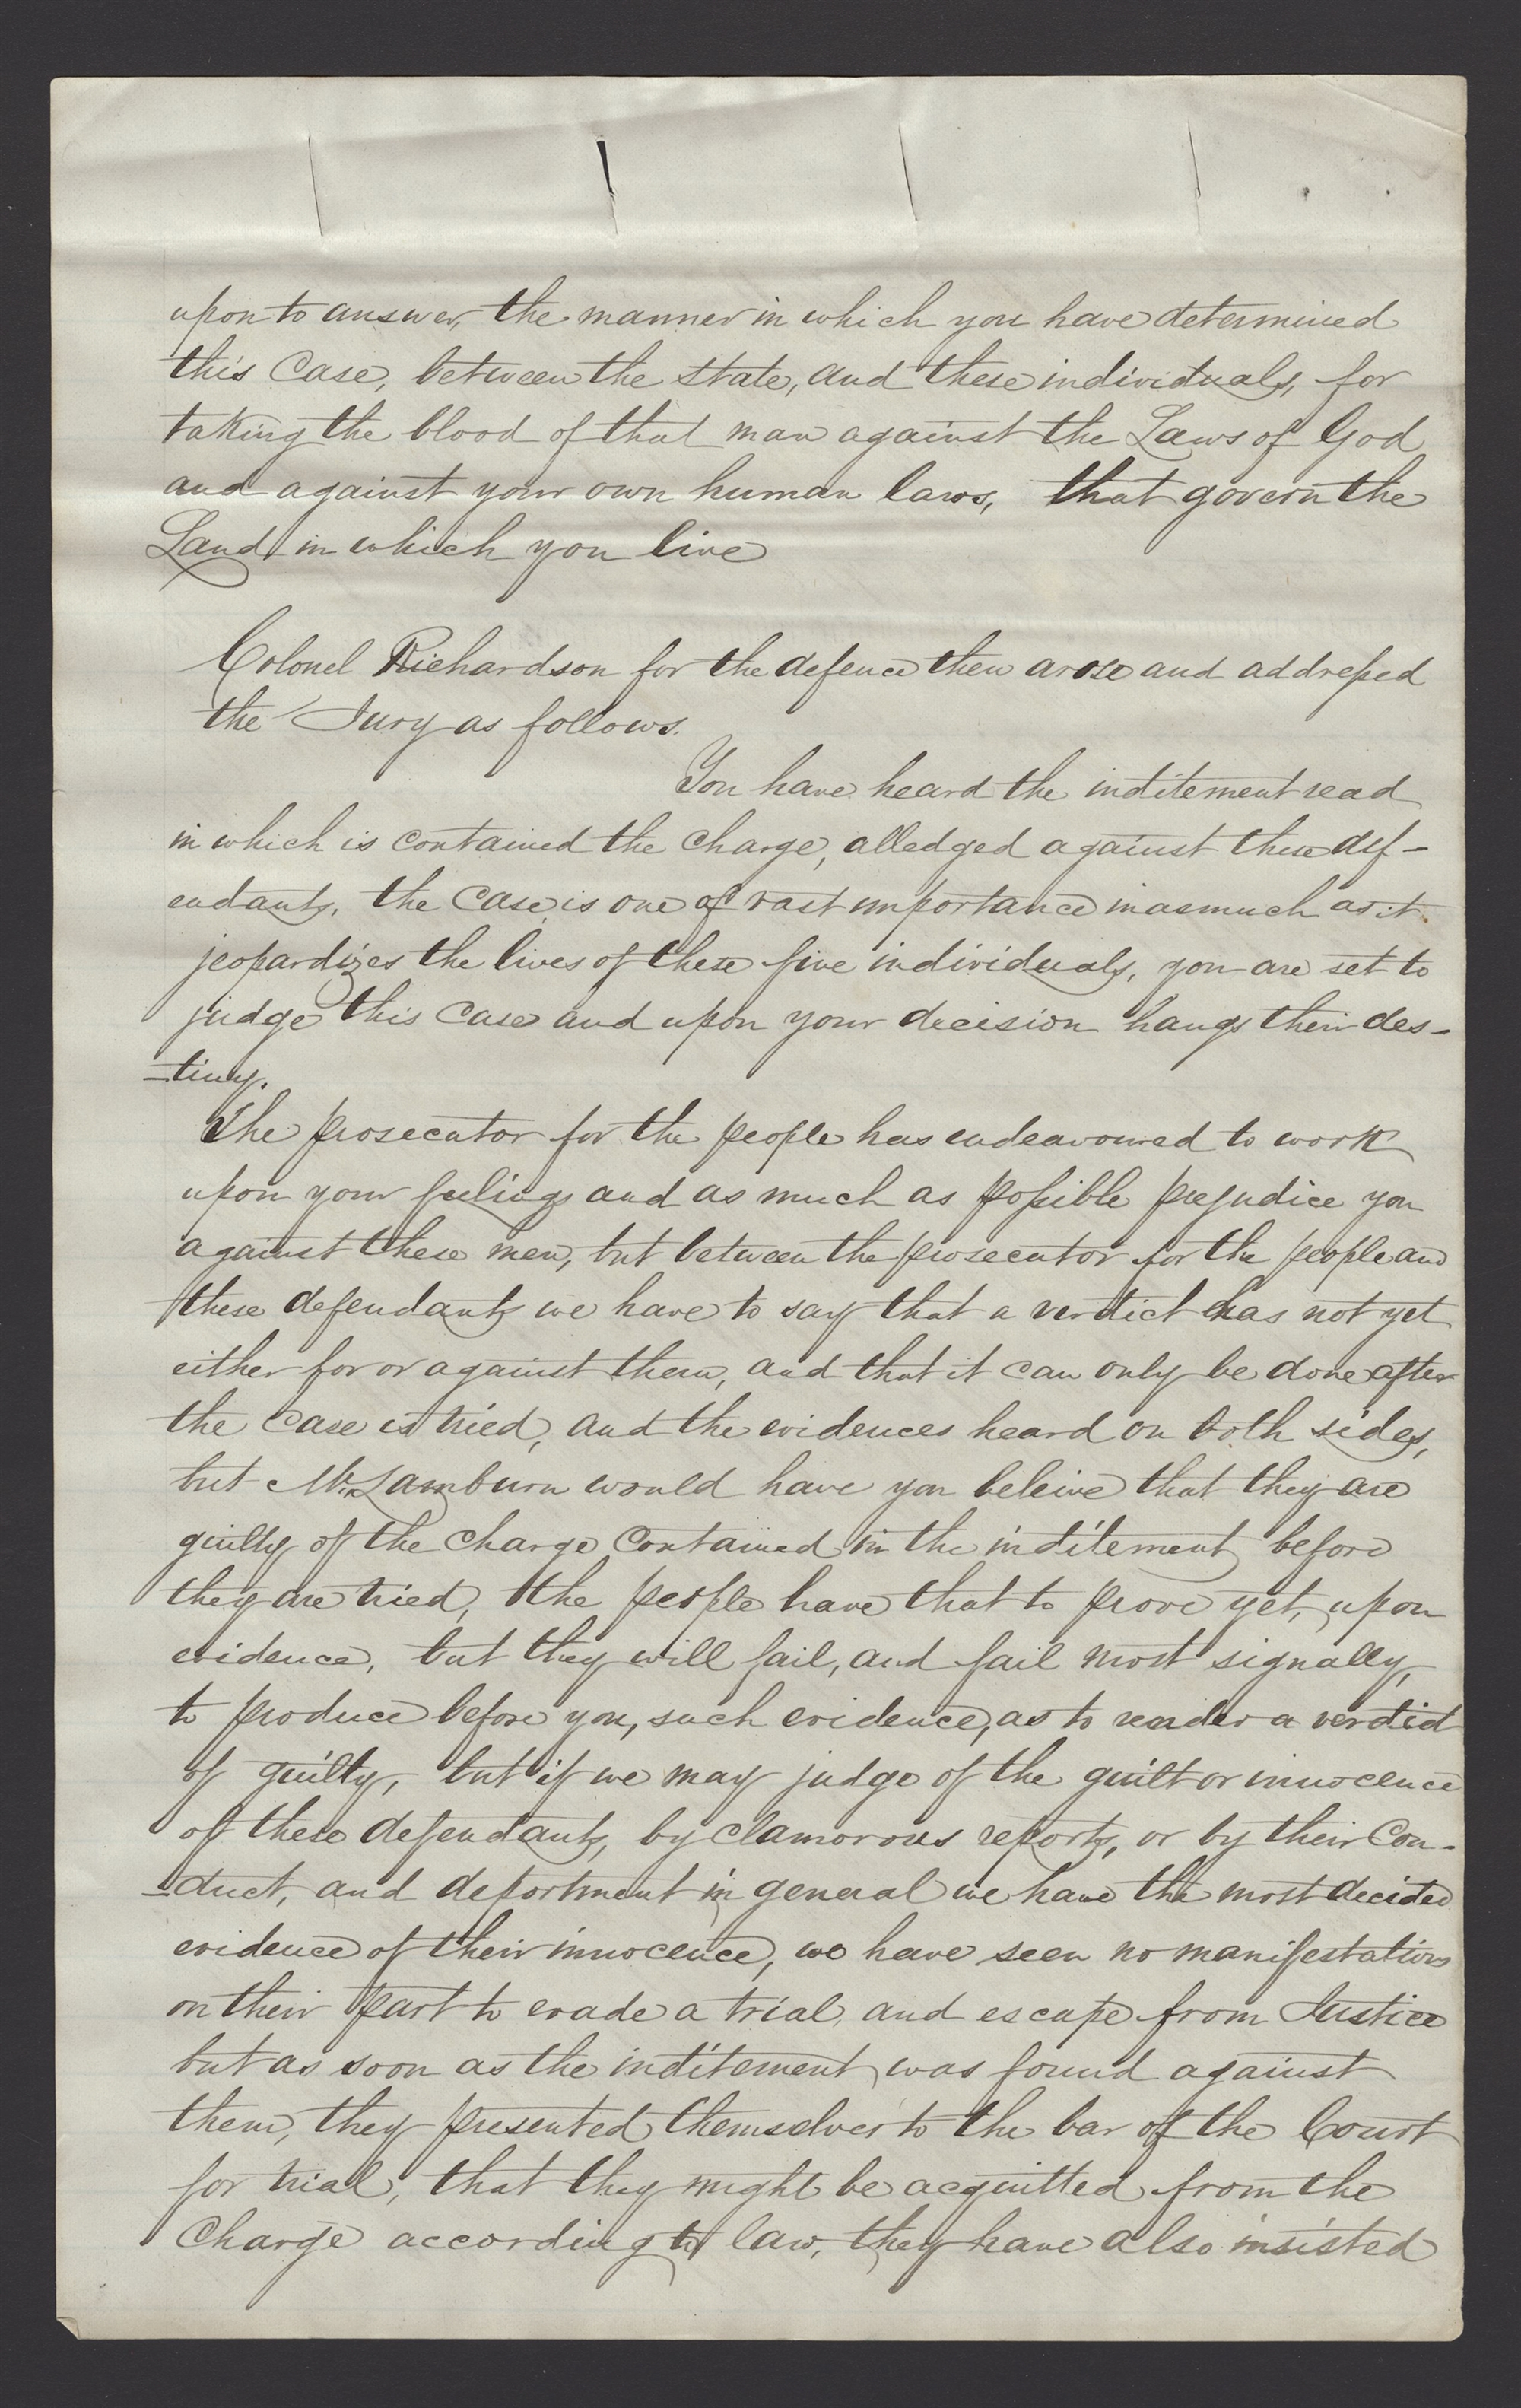 upon to answer, the manner in which you have determined
this Case, between the State, and these individuals, for
taking the blood of that man against the Laws of God
and against your own human laws, that govern the
Land in which you live
Colonel Richardson for the defence then arose and addressed
the Jury as follows.
You have heard the inditement read
in which is contained the Charge, alledged against these def-
endants, the Case, is one of vast importance inasmuch as it
jeopardizes the lives of these five individuals, you are set to
judge this Case and upon your decision hangs their des-
-tiny.
The prosecutor for the people has endeavoured to work
upon your feelings and as much as possible prejudice you
against these men, but between the prosecutor for the people and
these defendants we have to say that a verdict has not yet
either for or against them, and that it can only be done after
the Case is tried, and the evidences heard on both sides,
but Mr. Lamburn would have you beleive that they are
guilty of the Charge Contained in the inditement before
they are tried, the people have that to prove yet, upon
evidence, but they will fail, and fail most signally,
to produce before you, such evidence, as to render a verdict
of guilty, but if we may judge of the guilt or innocence
of these defendants, by clamorous reports, or by their Con-
-duct, and deportment in general we have the most decided
evidence of their innocence, we have seen no manifestations
on their part to evade a trial, and escape from Justice
but as soon as the inditement was found against
them, they presented themselves to the bar of the Court
for trial, that they might be acquitted from the
Charge according to law, they have also insisted